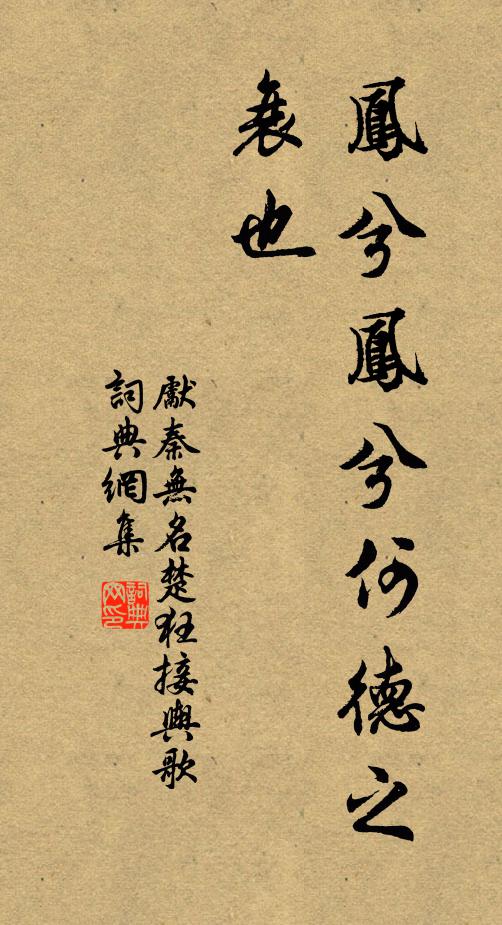 鳳兮鳳兮何德之
衰也
獻秦無名楚狂接輿歌
詞典網集
詞典網印